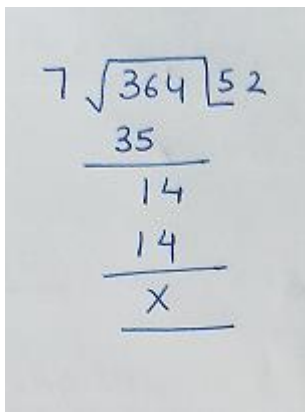 7 √364 52
35
14
14
x